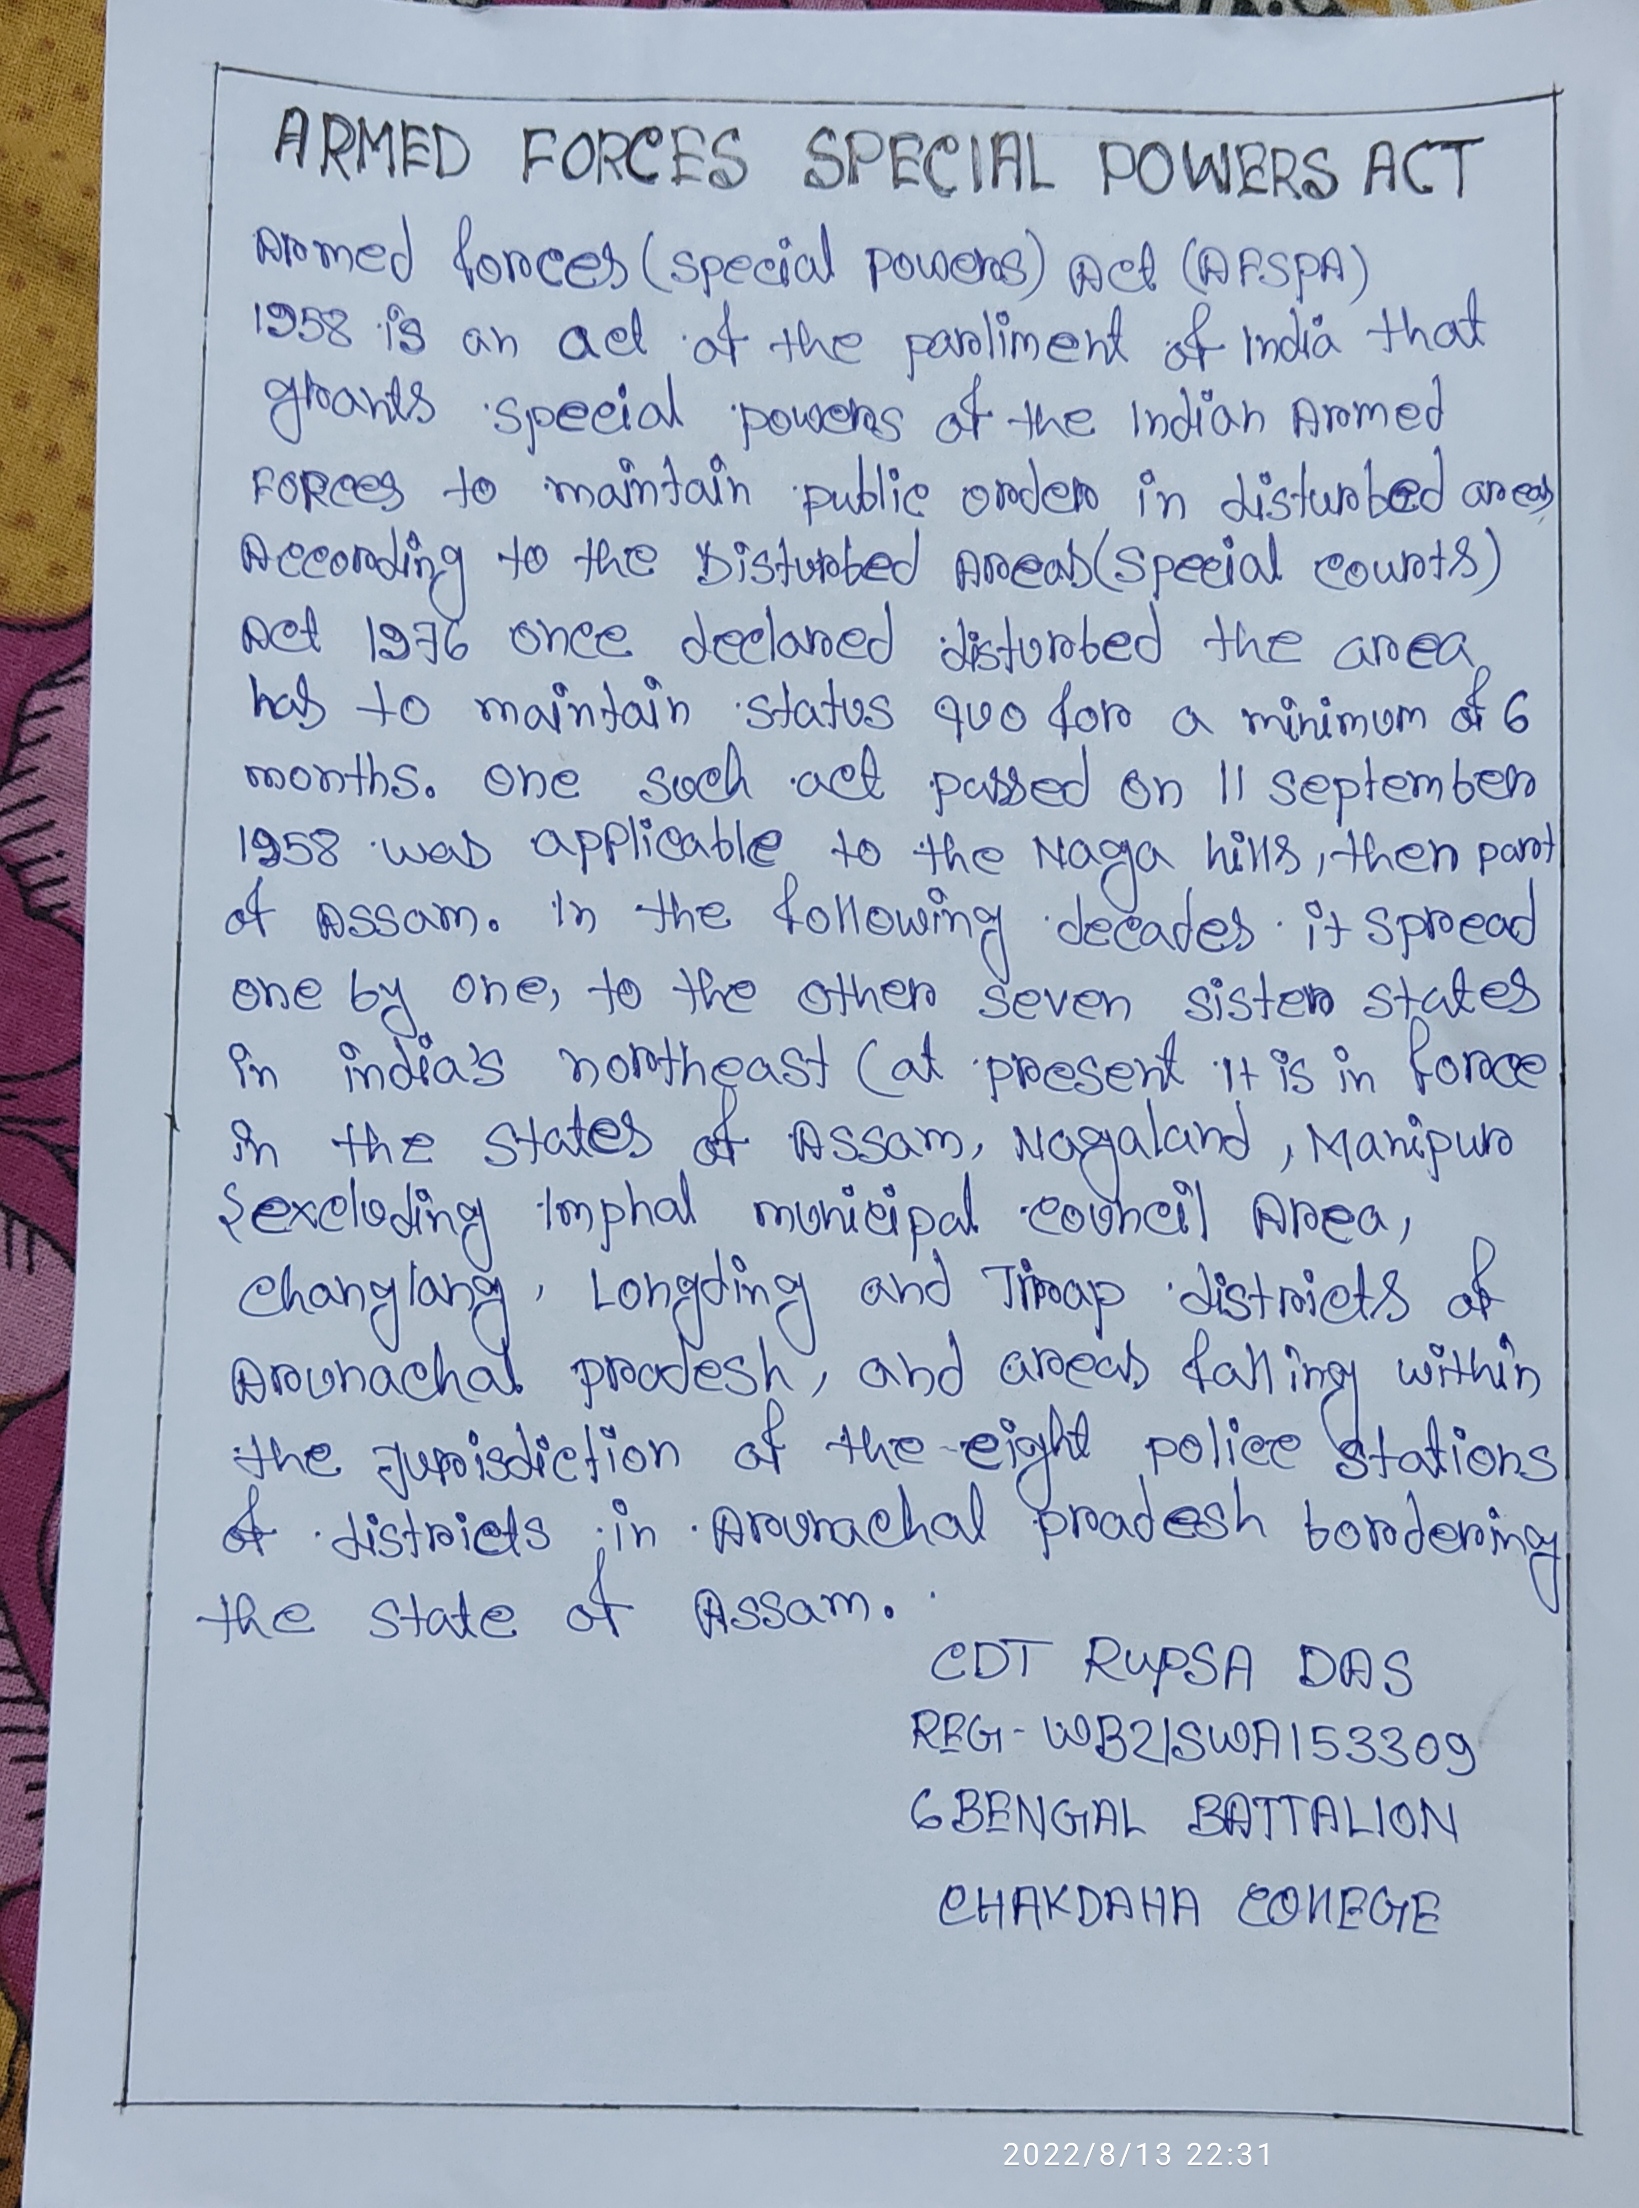 ARMED FORCES SPECIAL POWERS ACT
Armed forces (special powers) Act (AFSPA)
1958 is an act of the parliment of India that
grants special powers of the Indian Armed
FORCES to maintain public order in disturbed areas
According to the Disturbed Areas (special courts)
Act 1976 once declared disturbed the area
has to maintain status quo for a minimum of 6
months. one such act passed on 11 september
1958 was applicable to the Naga hills, then part
of Assam. In the following decades it spread
one by one, to the other seven sister states
in india's northeast (at present it is in force
in the states of Assam, Nagaland, Manipur
{excluding Imphal municipal council Area,
changlang, Longding and Tirap districts of
Arunachal pradesh, and areas falling within
the jurisdiction of the eight police stations
of districts in Arunachal pradesh bordering
the state of Assam.
CDT RUPSA DAS
REG- WB21SWA153309
6 BENGAL BATTALION
CHAKDAHA COLLEGE
2022/8/13 22:31